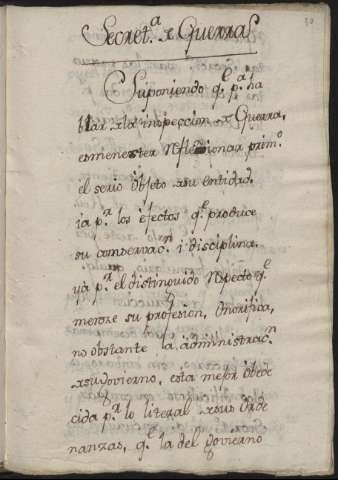 Secret.ª de Guerra
Suponiendo q.e p.ª ha
blar de la inspeccion de Guerra,
es menester reflexionar prim.º
el serio objeto de su entidad.
ia p.r los efectos q.e produce
su conservac.n i disciplina.
ya p.r el distinguido respecto q.e
mereze su profesion, Onorifica,
no obstante la administrac.n
de su govierno, esta mejor obede
cida p.r lo literal de sus Orde
nanzas, q.e la del govierno